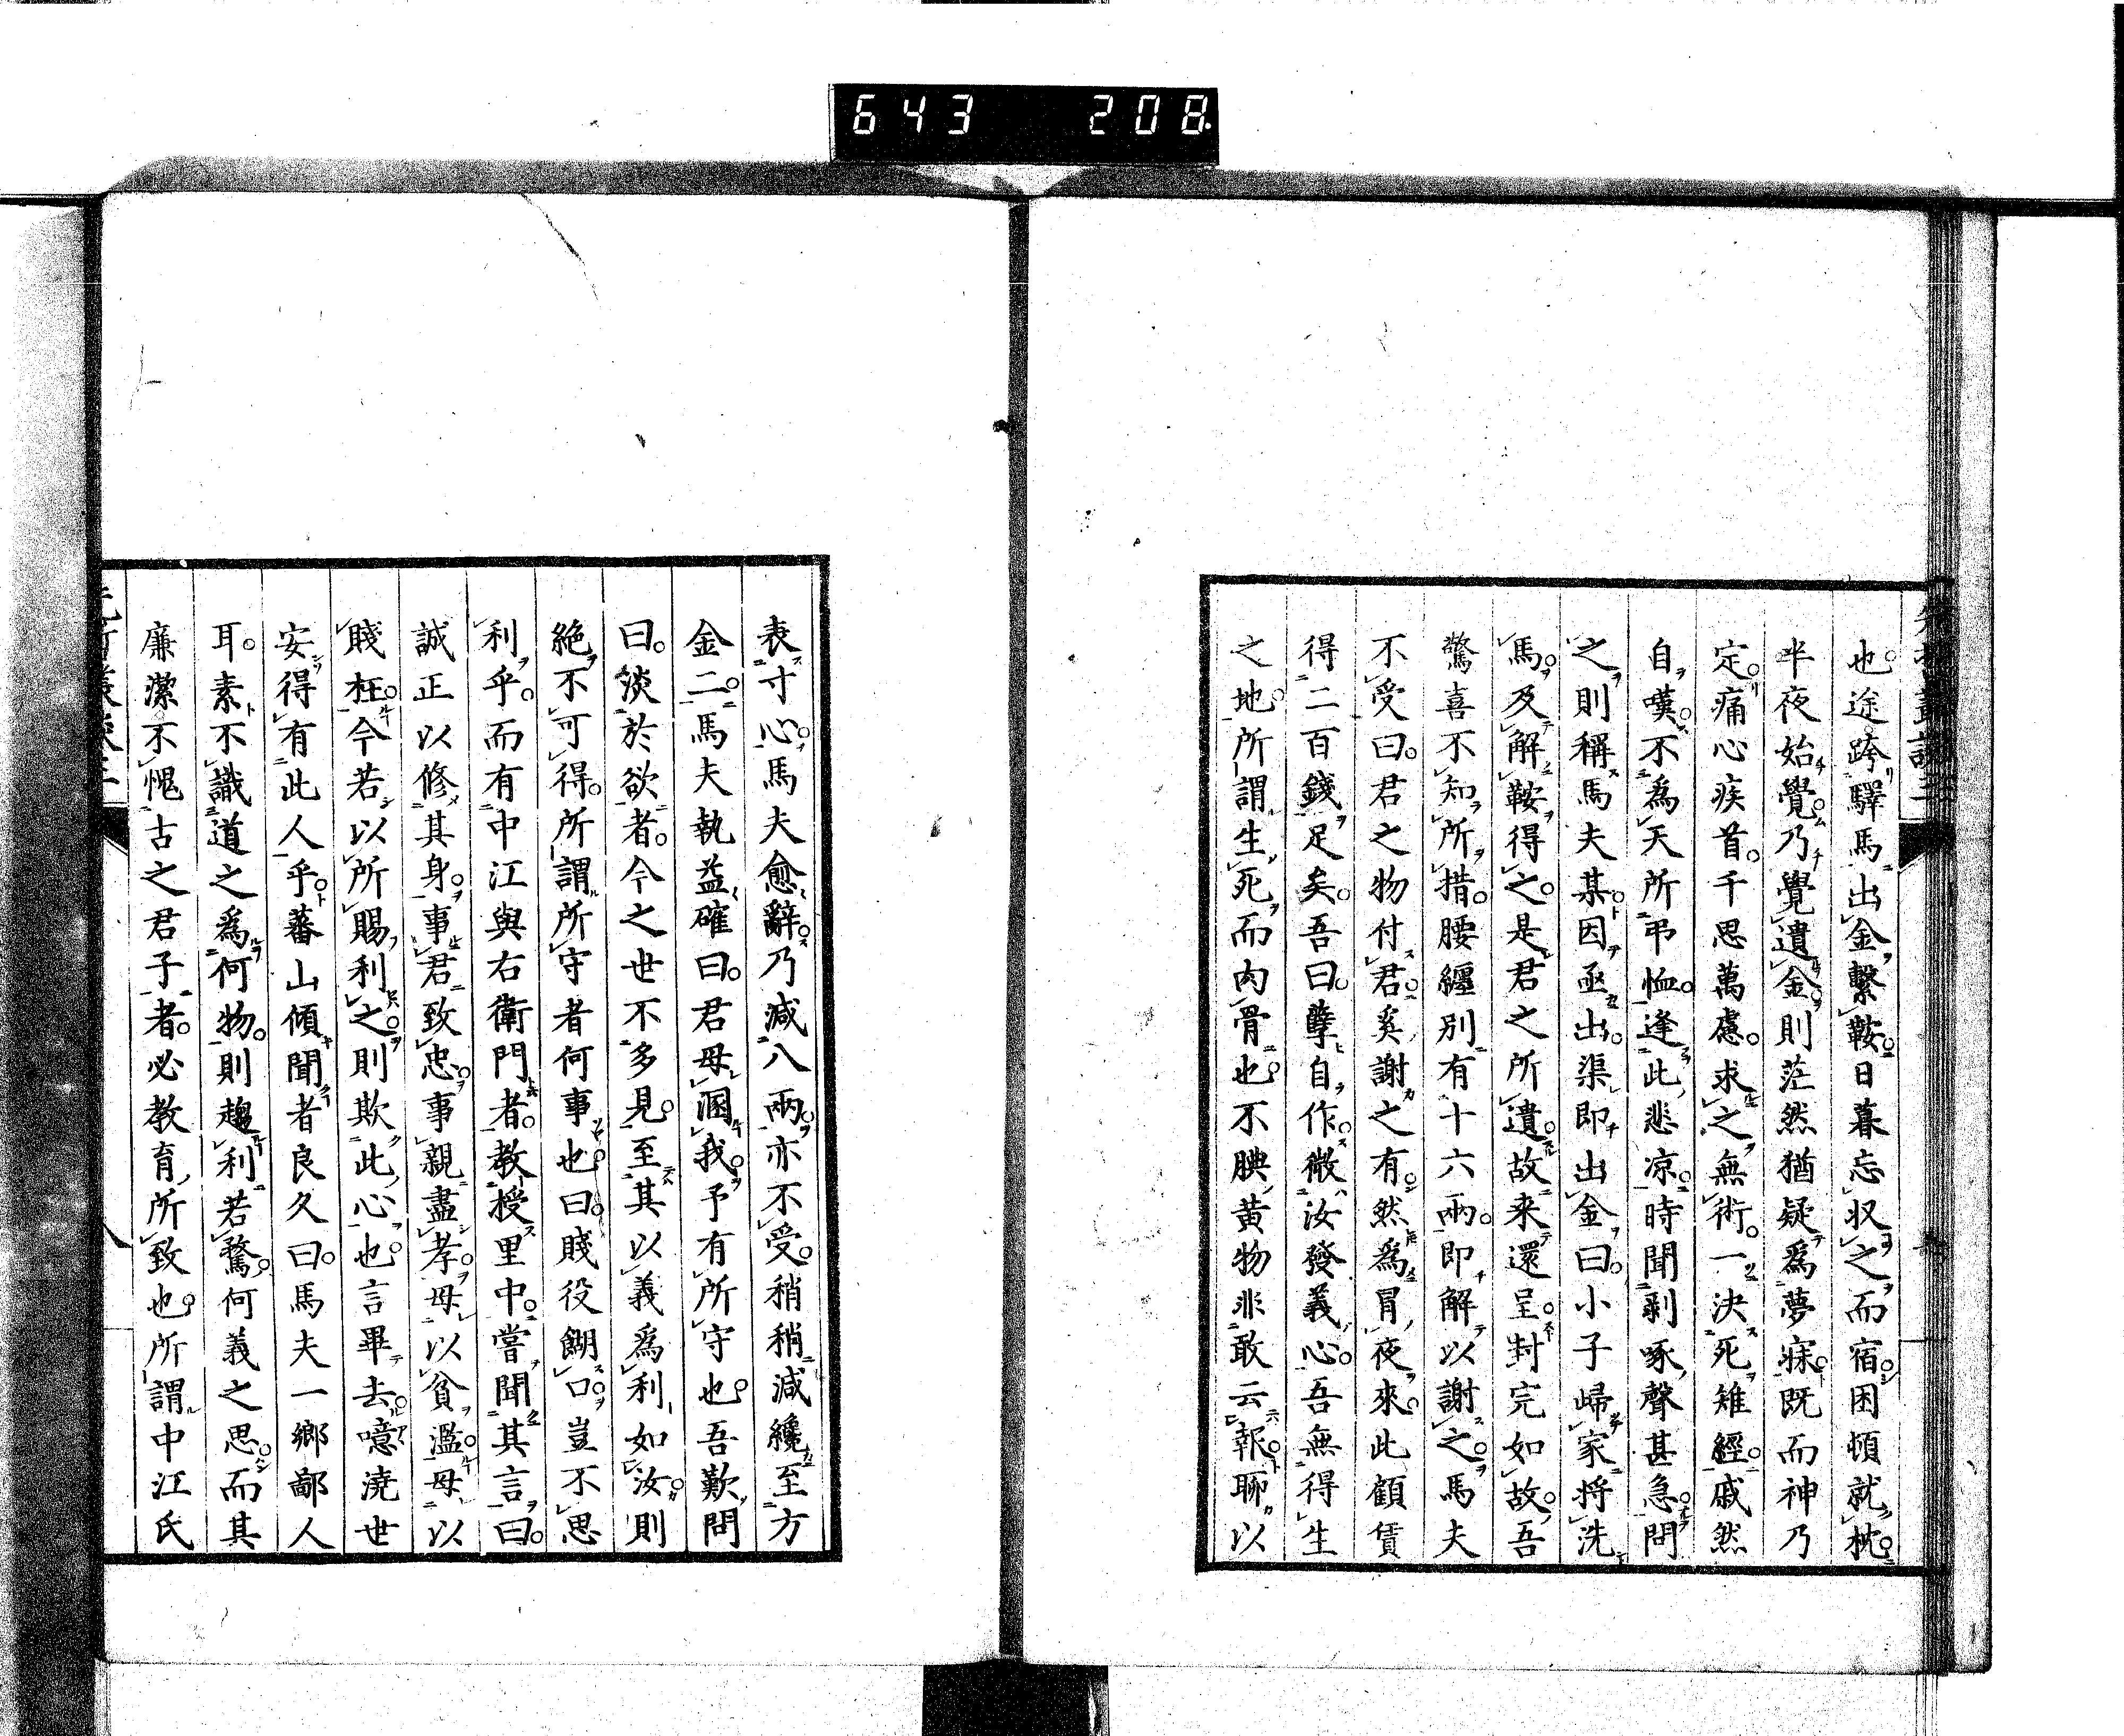 643 208
也途跨驛馬出金繫鞍日暮忘収之而宿困頓就枕
半夜始覺乃覺遺金則茫然猶疑爲夢寐既而神乃
定痛心疾首千思萬慮求之無術一決死雉經戚然
自嘆不為天所弔恤逢此悲凉時聞剥啄聲甚急問
之則稱馬夫某因亟出渠即出金曰小子歸家将洗
馬及解鞍得之是君之所遺故来還呈封完如故吾
驚喜不知所措腰纏別有十六兩即解以謝之馬夫
不受曰君之物付君奚謝之有然爲冐夜來此顧賃
得二百錢足矣吾曰孽自作微汝發義心吾無得生
之地所謂生死而肉骨也不腆黄物非敢云報聊以
表寸心馬夫愈辭乃減八兩亦不受稍稍減纔至方
金二馬夫執益確曰君毋溷我予有所守也吾歎問
曰淡於欲者今之世不多見至其以義爲利如汝則
絶不可得所謂所守者何事也曰賤役餬口豈不思
利乎而有中江與右衛門者教授里中嘗聞其言曰
誠正以修其身事君致忠事親盡孝毋以貧濫毋以
賤枉今若以所賜利之則欺此心也言畢去噫澆世
安得有此人乎蕃山傾聞者良久曰馬夫一鄉鄙人
耳素不識道之爲何物則趨利若騖何義之思而其
廉潔不愧古之君子者必教育所致也所謂中江氏